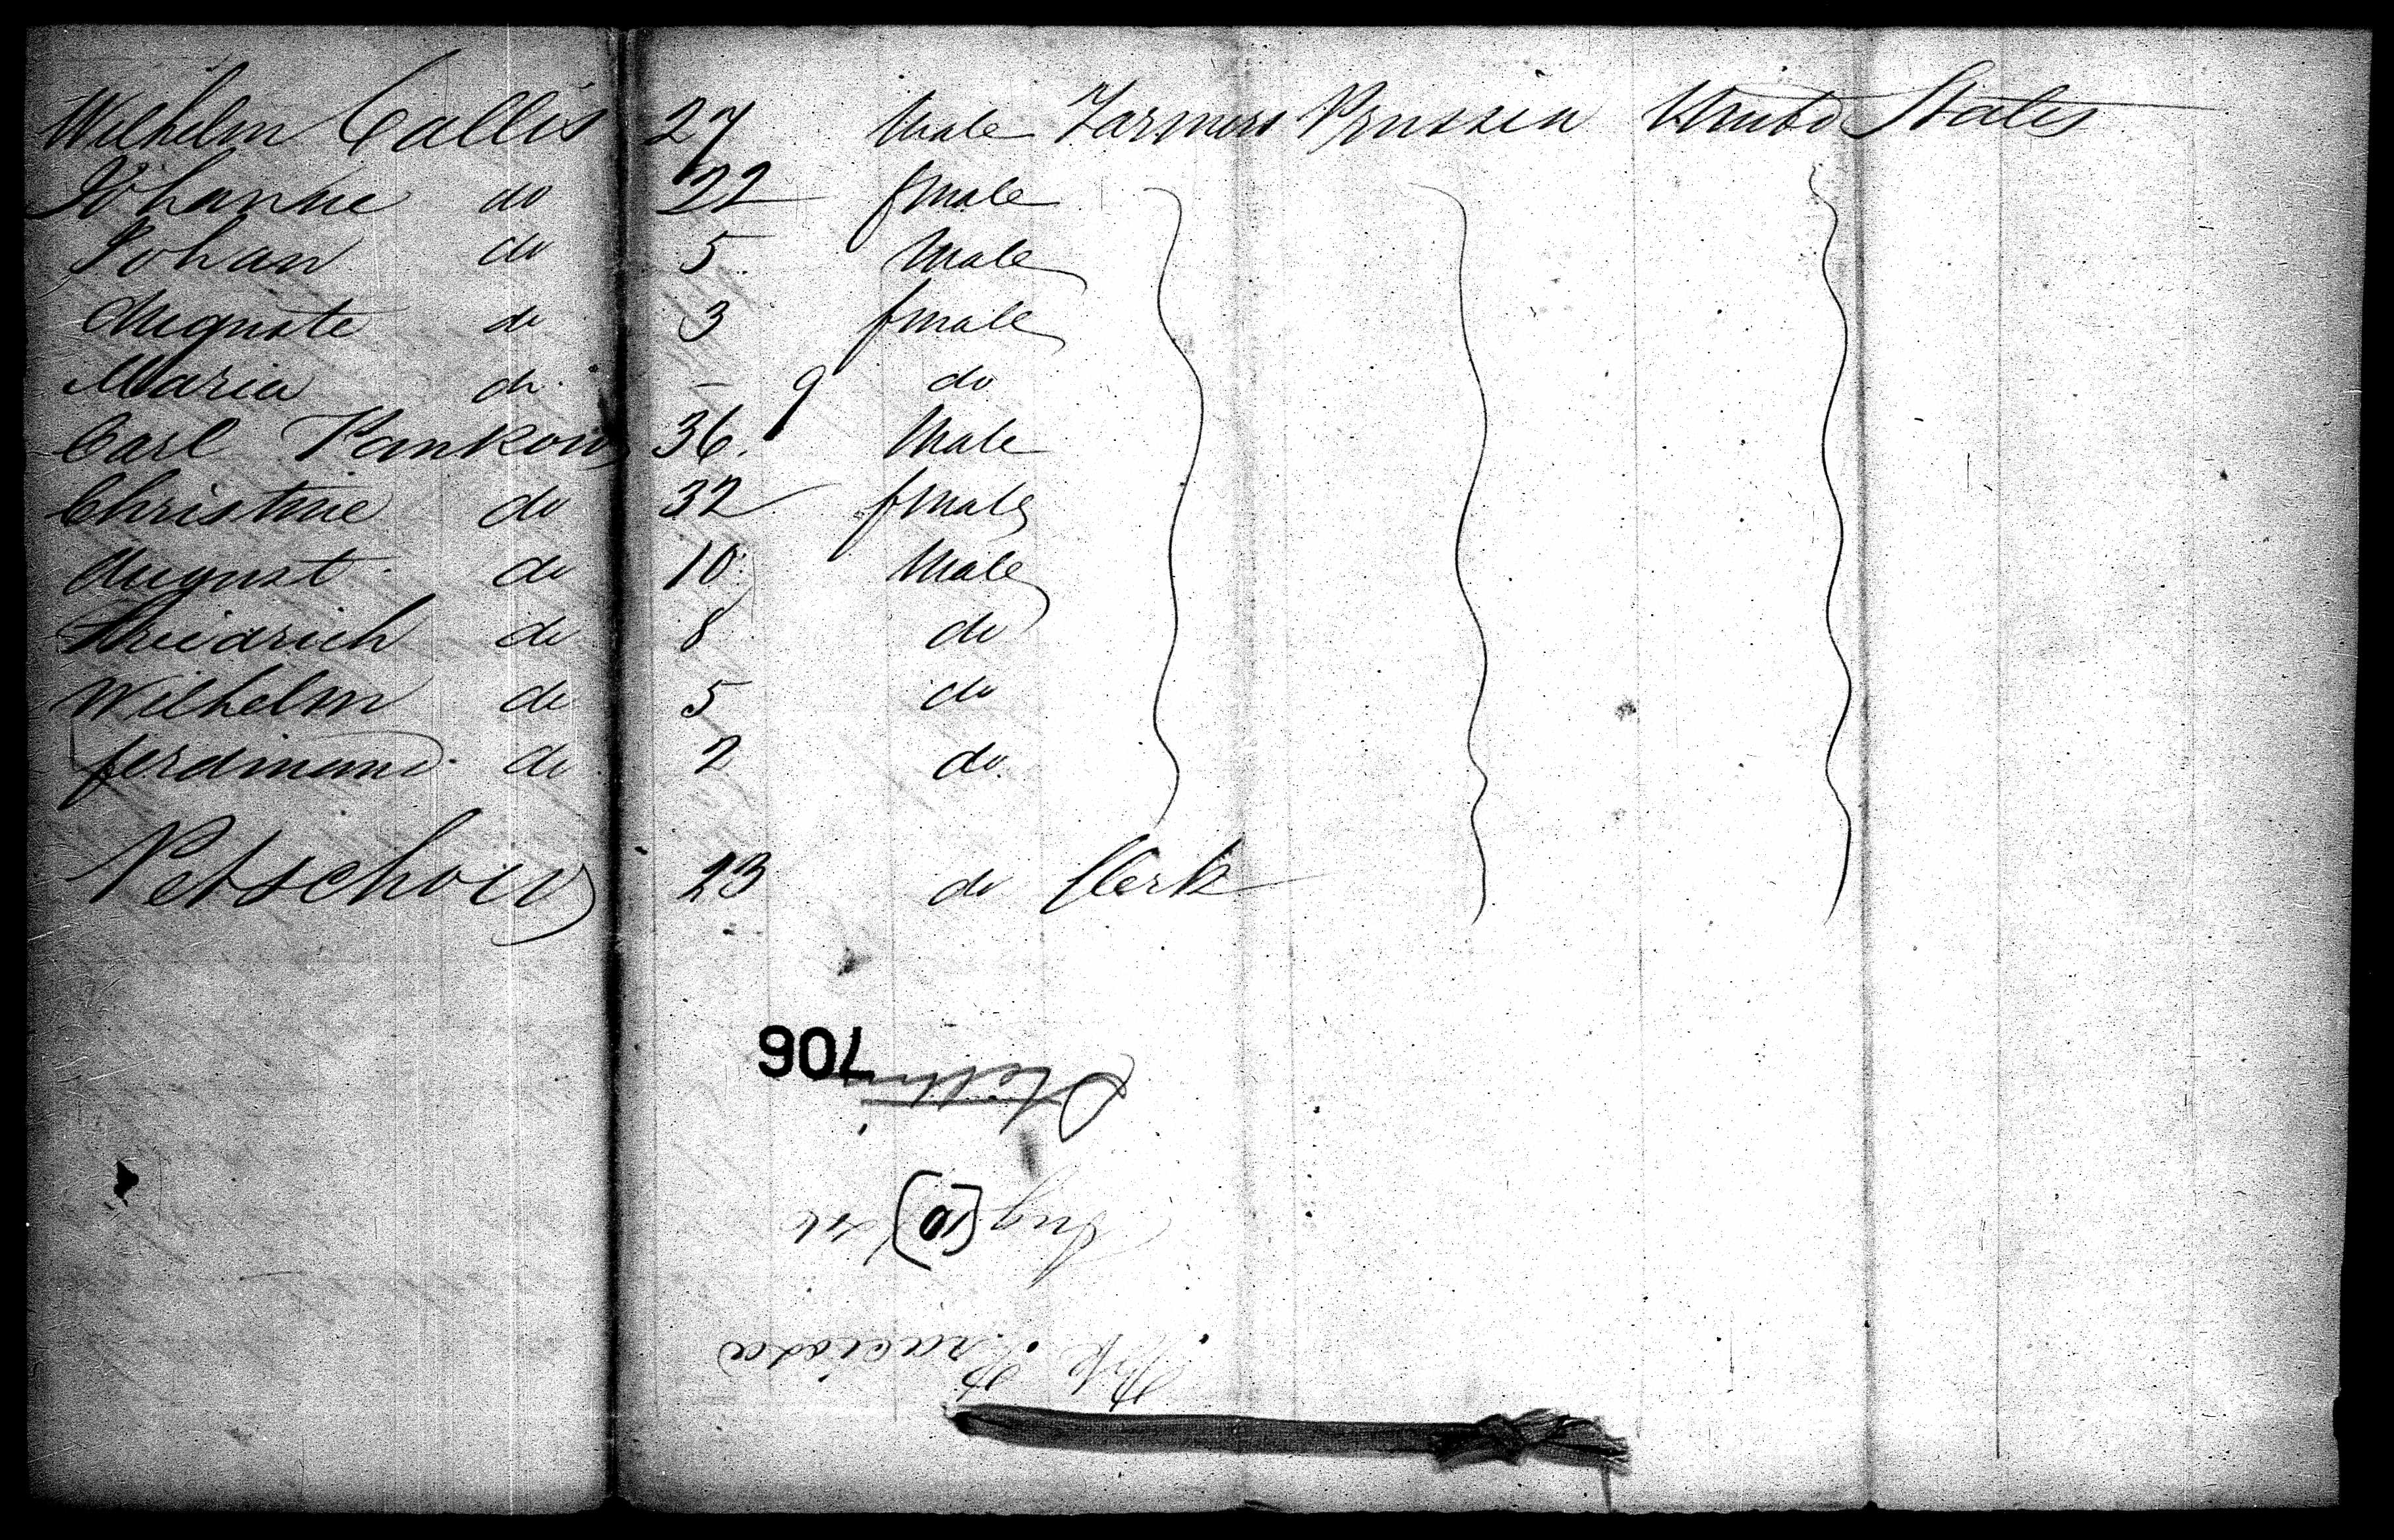 Wilhelm Callis 27 Male Farmers Prussia United States
Johanne do 22 female
Johan do 5 Male
Auguste do 3 female
Maria do - 9 do
Carl Pankow 36. Male
Christine do 32 female
August do 10 Male
Friedrich do 8 do
Wilhelm do 5 do
ferdinand do 2 do
Petschow 23 do Clerk
706
Stettin
Aug (10)